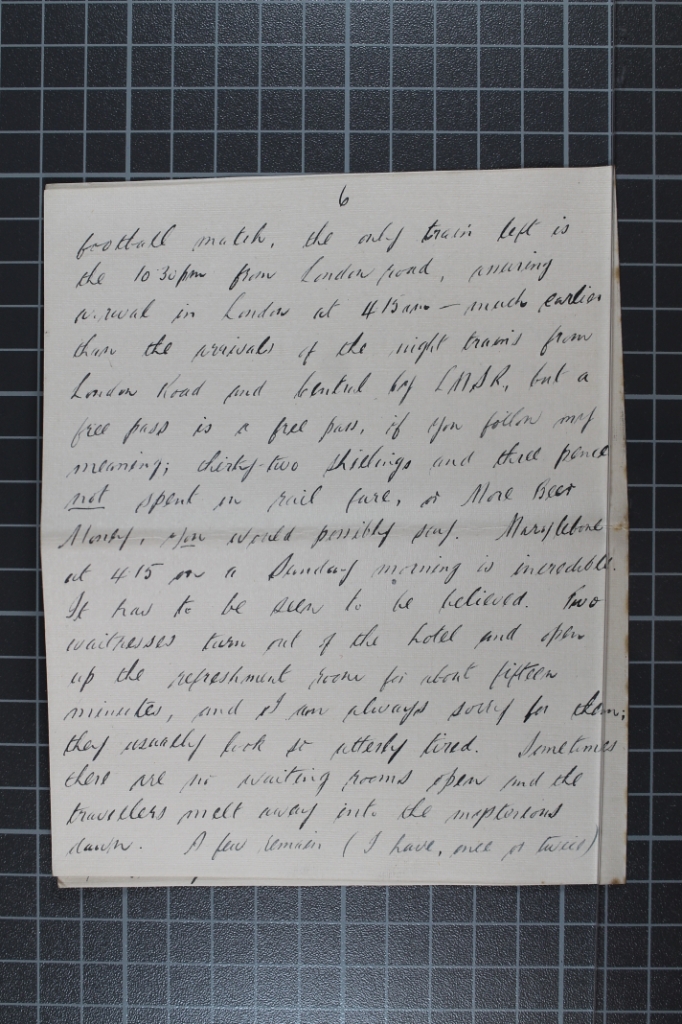 6
football match, the only train left is
the 10 30pm from London road, assuring
arrival in London at 4 15am — much earlier
than the arrivals of the night trains from
London Road and Central by LMSR, but a
free pass is a free pass, if you follow my
meaning; thirty-two shillings and three pence
not spent in rail fare, or More Beer
Money, you would possibly say. Marylebone
at 4 15 on a Sunday morning is incredible.
It has to be seen to be believed. Two
waitresses turn out of the hotel and open
up the refreshment room for about fifteen
minutes, and I am always sorry for them;
they usually look so utterly tired. Sometimes
there are no waiting rooms open and the
travellers melt away into the mysterious
dawn. A few remain (I have, once or twice)